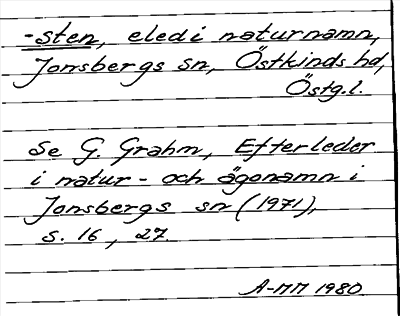 -sten, eled i naturnamn,
Jonsbergs sn, Östkinds hd,
Östg.l.
Se G. Grahm, Efterleder
i natur- och ägonamn i
Jonsbergs sn (1971),
s. 16, 27.
A-MM 1980